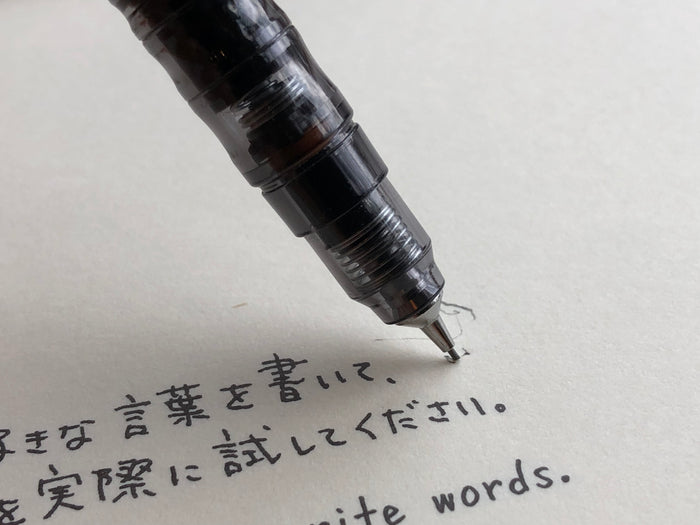 きな言葉を書いて、
を実際に試してください。
words.